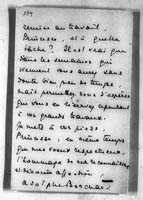 134
remise au travail.
Princesse, et à quelle
tâche? Il est vrai que
dans les semaines qui
viennent vous aurez sans
doute bien peu de temps,
mais permettez-moi d'espérer
que vous en réservez cependant
à vos grands travaux.
Je mets à vos pieds,
Princesse, en même temps
que mes vœux respectueux,
l'hommage de ma reconnaissance
Adolphe Boschot